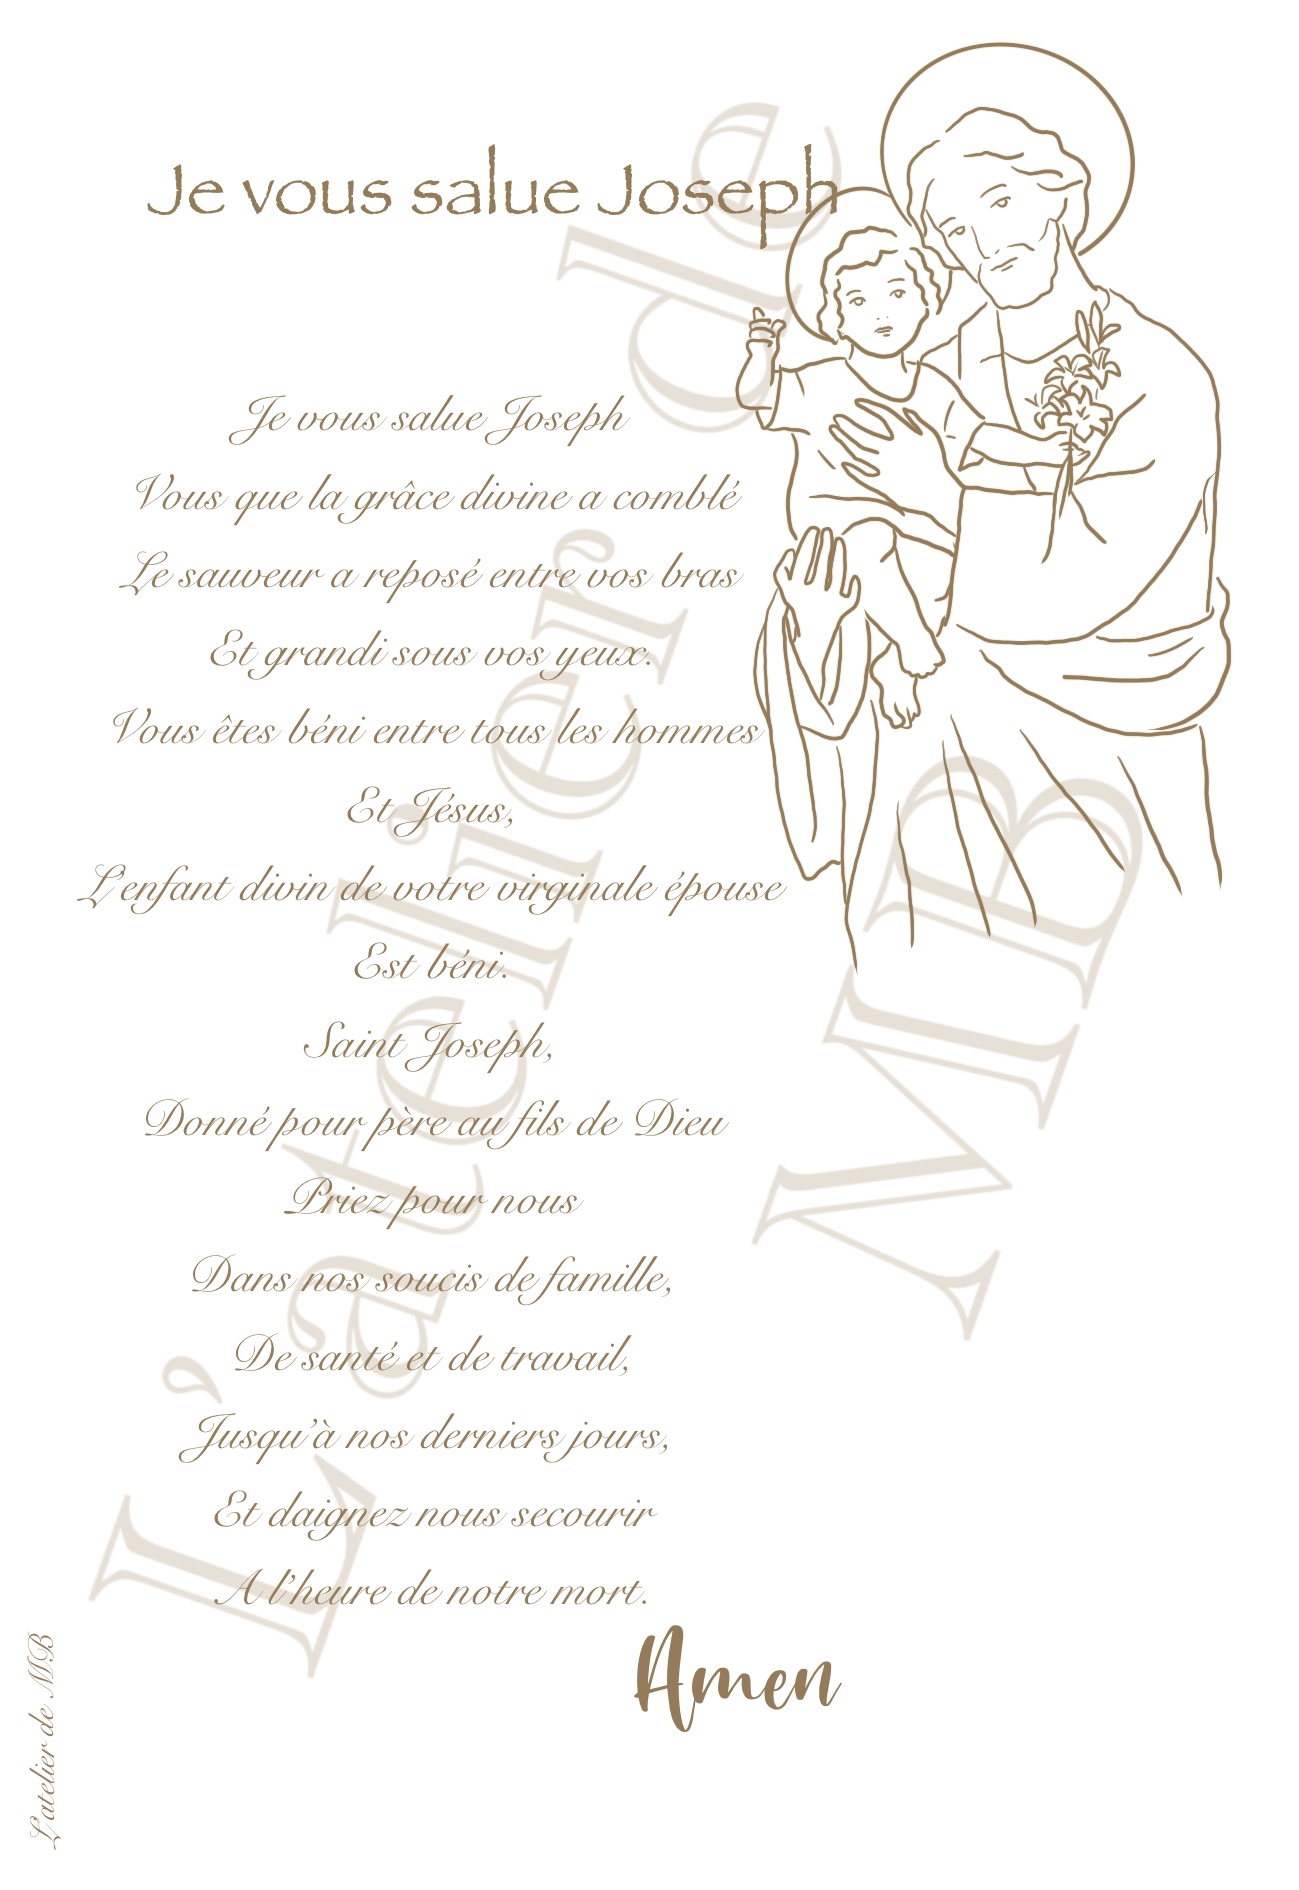 Je vous salue Joseph
Je vous salue Joseph
Vous que la grâce divine a comblé
Le sauveur a reposé entre vos bras
Et grandi sous vos yeux.
Vous êtes béni entre tous les hommes
Et Jésus,
L'enfant divin de votre virginale épouse
Est béni.
Saint Joseph,
Donné pour père au fils de Dieu
Priez pour nous
Dans nos soucis de famille,
De santé et de travail,
Jusqu'à nos derniers jours,
Et daignez nous secourir
A l'heure de notre mort.
Amen
L'atelier de MB
L'atelier de
MB